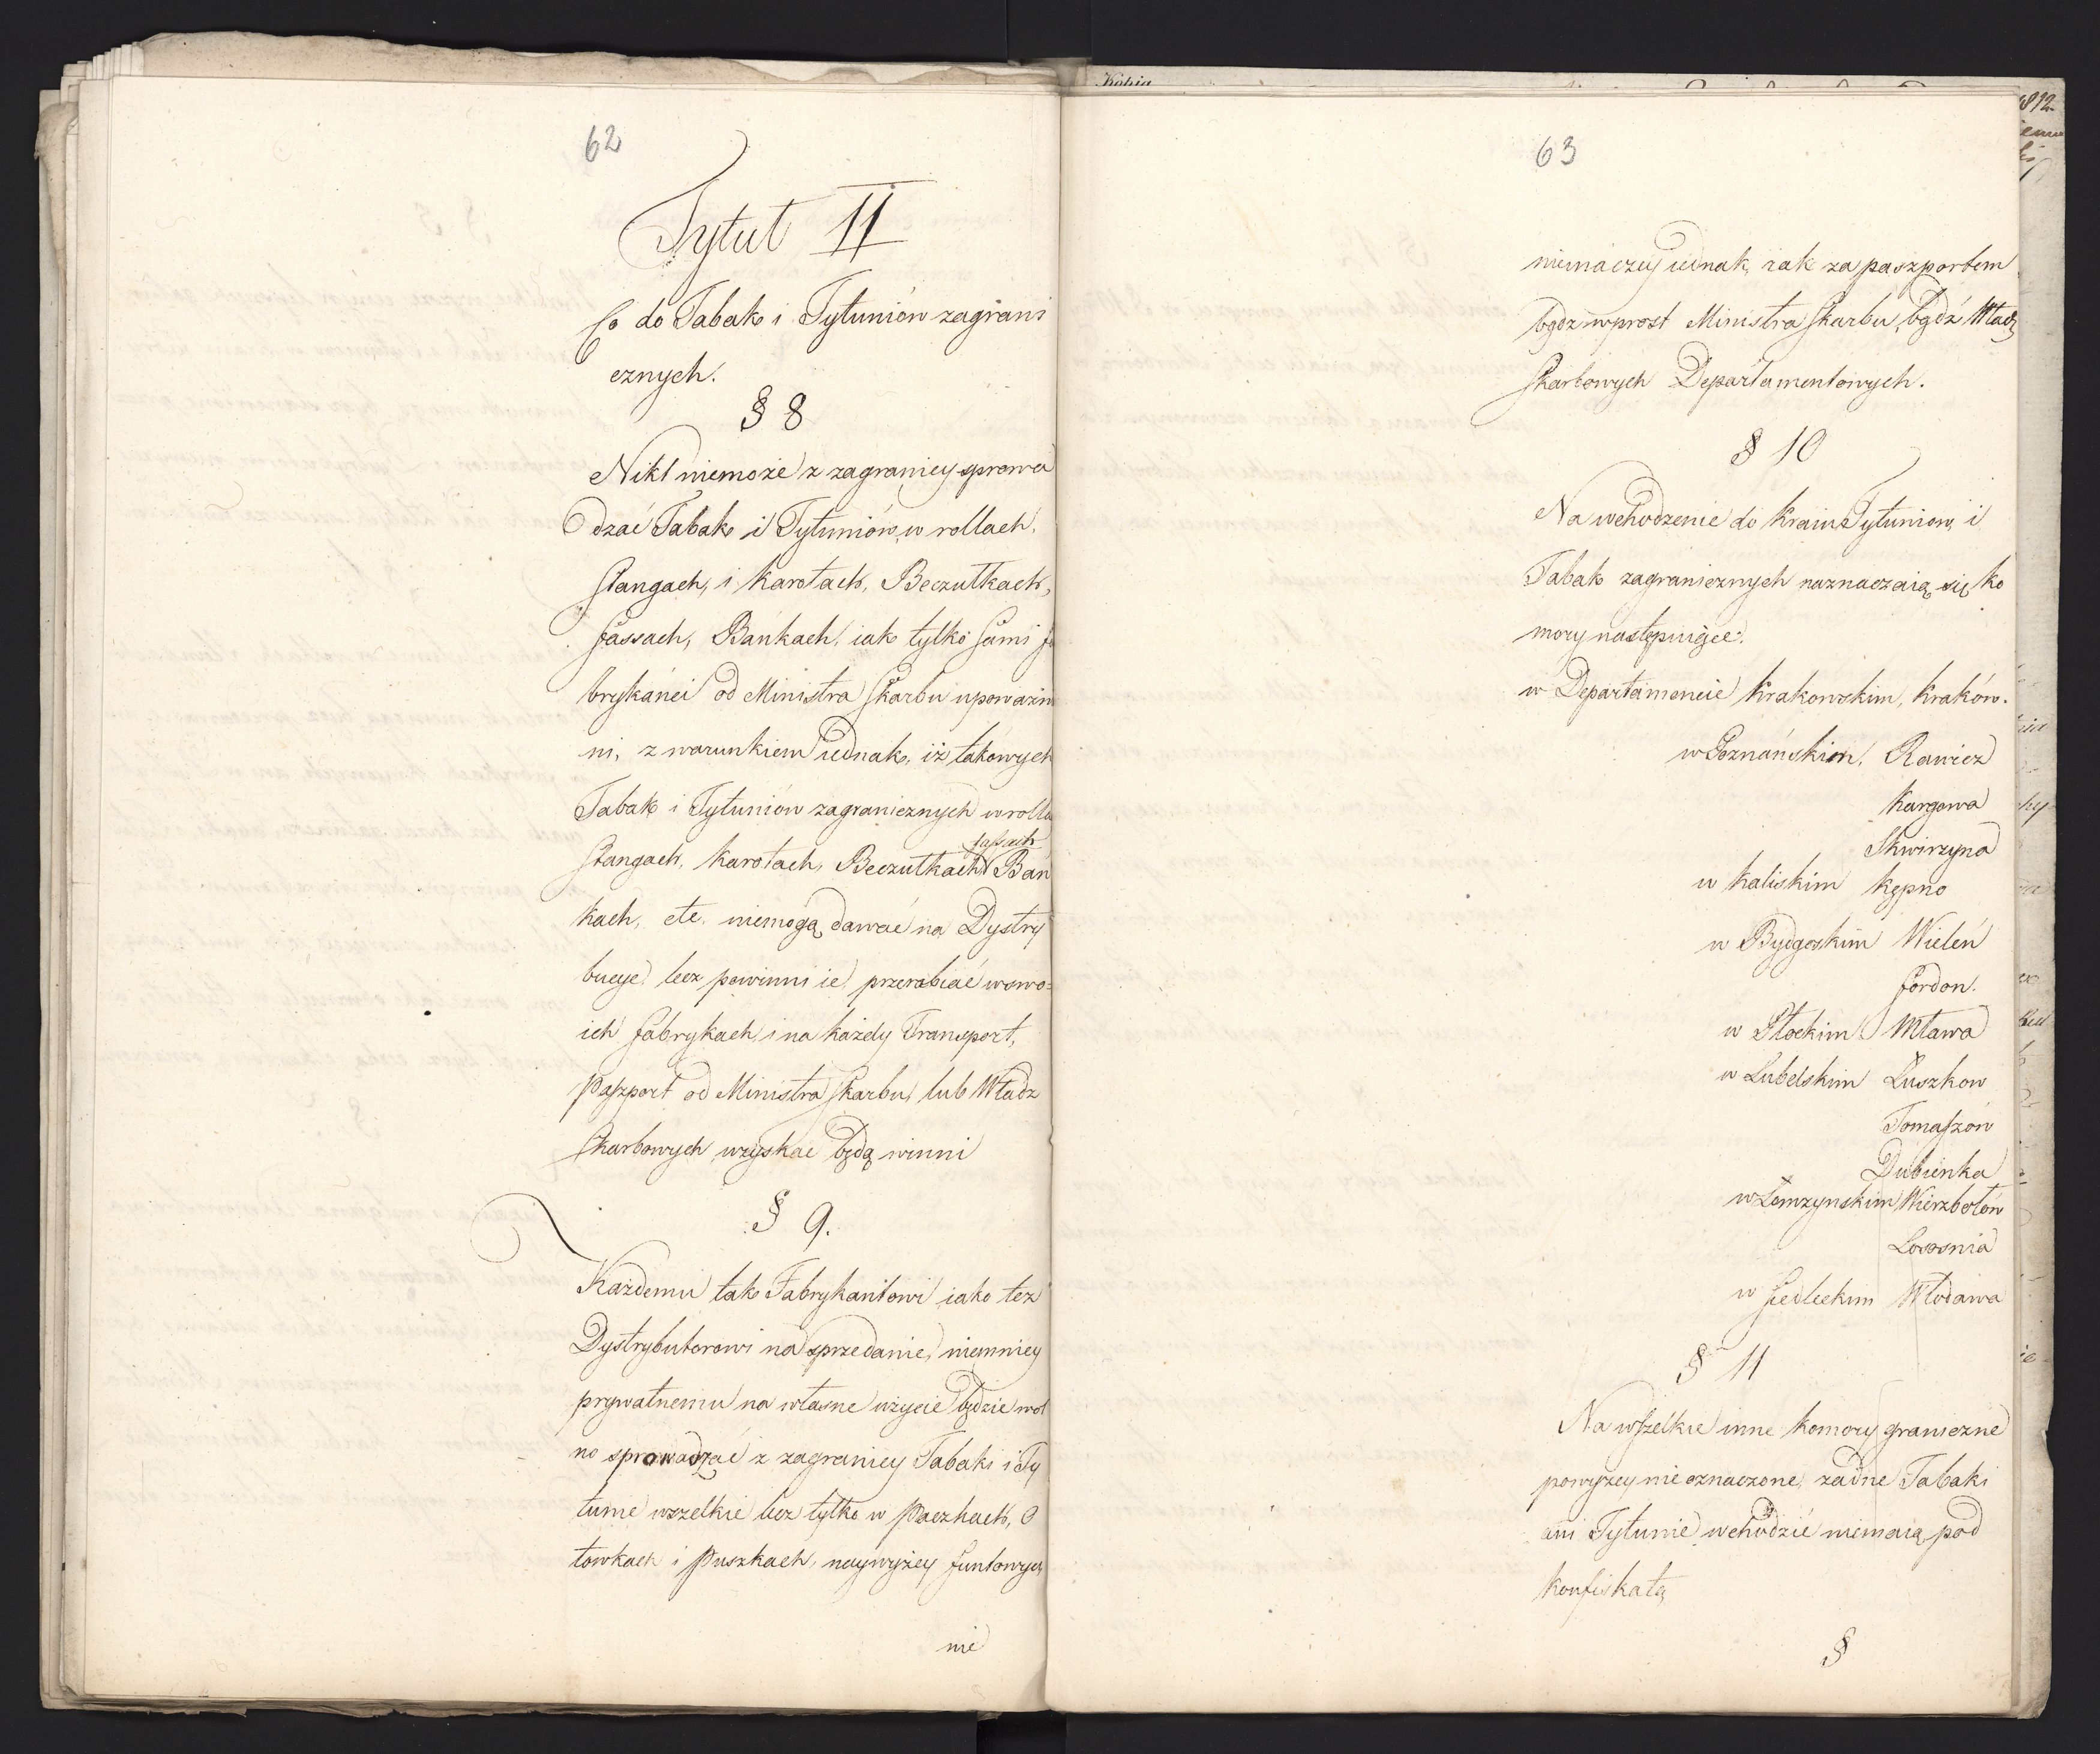 62
Tytuł II
Co do Tabak i Tytuniów zagrani
cznych.
§ 8
Nikt niemoże z zagranicy sprowa
dzać Tabak i Tytuniów, w rollach,
Stangach, i Karotach, Beczułkach,
fassach, Bańkach, iak tylko sami fa
brykańci od Ministra Skarbu upoważn
ni, z warunkiem iednak, iż takowych
Tabak i Tytuniów zagranicznych w rolla
fassach
Stangach, Karotach, Beczułkach Bań
kach, etc. niemogą dawać na Dystry
bucye lecz powinni ie przerabiać w swo=
ich fabrykach, i na każdy Transport,
Paszport od Ministra Skarbu lub Władz
Skarbowych uzyskać będą winni
§ 9.
Każdemu tak Fabrykantowi iako też
Dystrybutorowi na sprzedanie, niemniey
prywatnemu na własne użycie będzie wol
no sprowadzać z zagranicy Tabaki i Ty
tunie wszelkie lecz tylko w Paczkach, O
łowkach i Puszkach, naywyżey funtowych
nie
Kopia
1812.
63
nieinaczey iednak, iak za paszportem
bądz wprost Ministra Skarbu, bądź Władz
Skarbowych Departamentowych.
§ 10
Na wchodzenie do Kraiu Tytuniow i
Tabak zagranicznych naznaczaią się Ko
mory następuiące.
w Departamencie Krakowskim, Kraków.
w Poznańskim, Rawicz
Kargowa
Skwirzyna
w Kaliskim Kępno
w Bydgoskim Wieleń
fordon.
w Płockim Mława
w Lubelskim Łuszkow
Tomaszów
Dubienka
w Łomzynskim Wierzbołów
Łososnia
w Siedleckim Włodawa
§ 11
Na wszelkie inne Komory graniczne
powyzey nieoznaczone, zadne Tabaki
ani Tytunie wchodzić niemaią pod
Konfiskatą
§